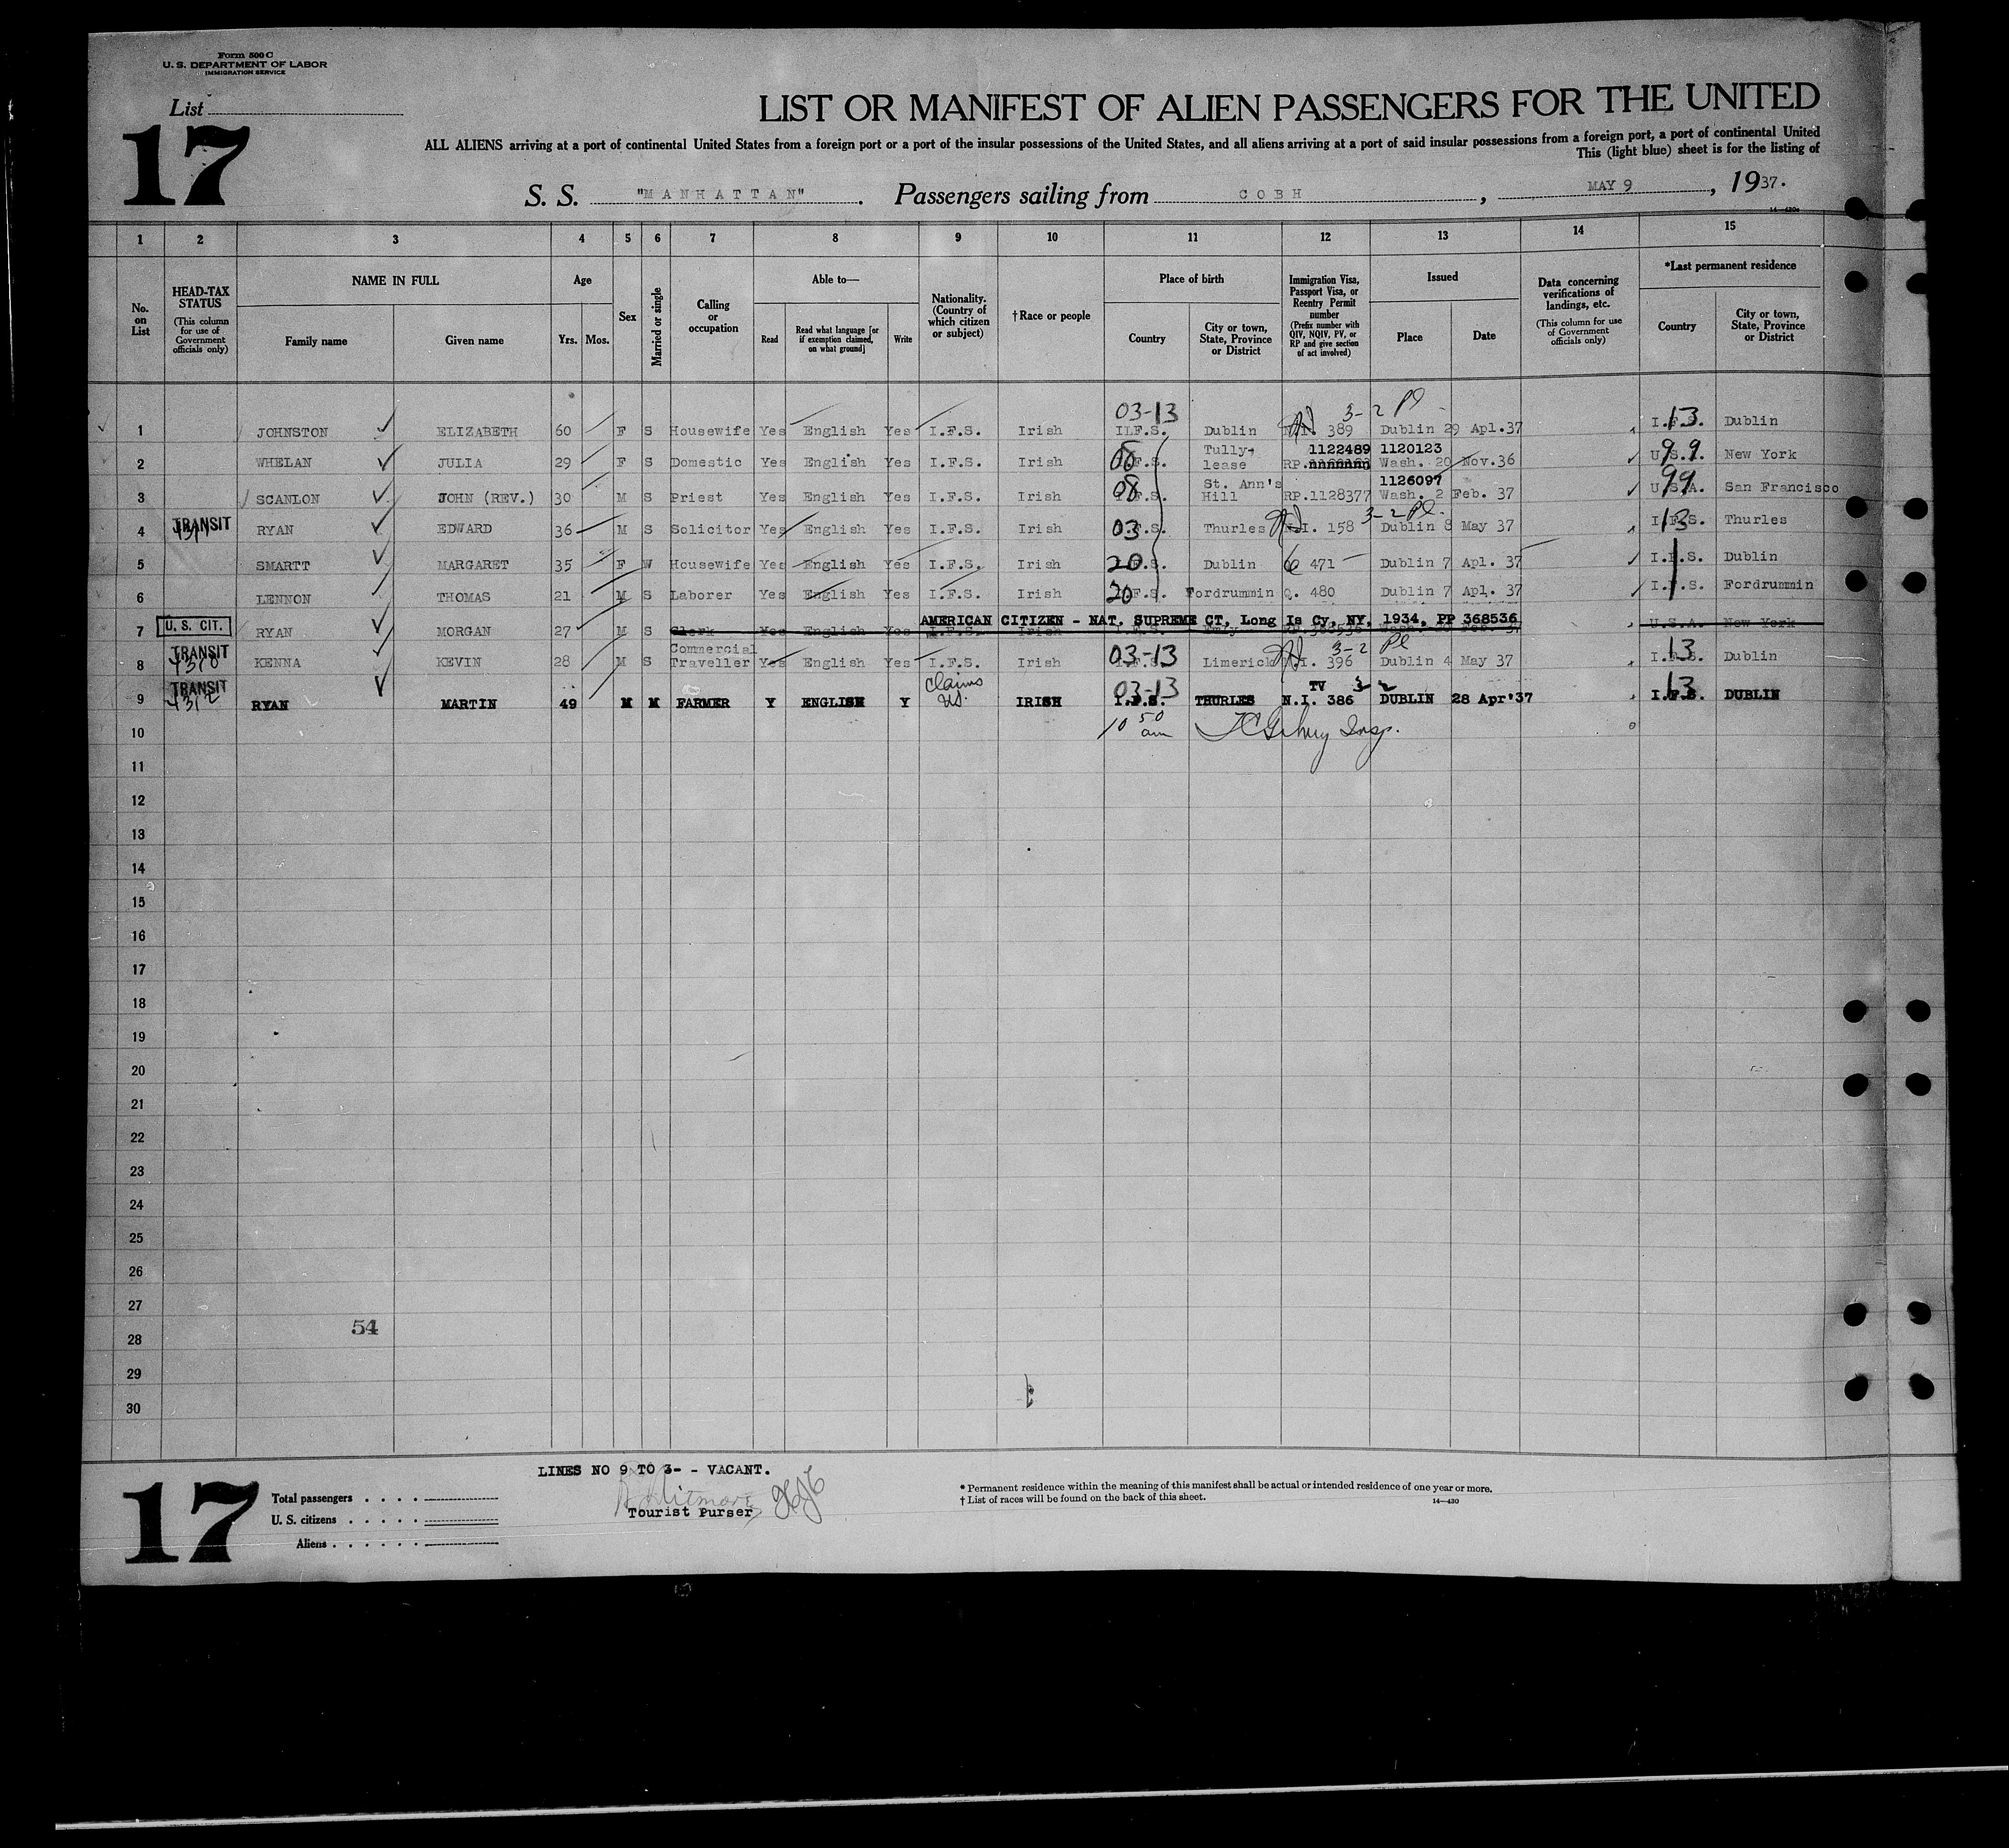 Form 500 C
U. S. DEPARTMENT OF LABOR
IMMIGRATION SERVICE
List
17
LIST OR MANIFEST OF ALIEN PASSENGERS FOR THE UNITED
ALL ALIENS arriving at a port of continental United States from a foreign port or a port of the insular possessions of the United States, and all aliens arriving at a port of said insular possessions from a foreign port, a port of continental United
This (light blue) sheet is for the listing of
S. S. "MANHATTAN". Passengers sailing from COBH, MAY 9, 1937.
14—430a
1 2 3 4 5 6 7 8 9 10 11 12 13 14 15
No. on List
HEAD-TAX STATUS (This column for use of Government officials only)
NAME IN FULL
Family name Given name
Age
Yrs. Mos.
Sex
Married or single
Calling or occupation
Able to—
Read Read what language [or if exemption claimed, on what ground] Write
Nationality. (Country of which citizen or subject)
†Race or people
Place of birth
Country City or town, State, Province or District
Immigration Visa, Passport Visa, or Reentry Permit number (Prefix number with QIV, NQIV, PV, or RP and give section of act involved)
Issued
Place Date
Data concerning verifications of landings, etc. (This column for use of Government officials only)
*Last permanent residence
Country City or town, State, Province or District
03-13 3-2 Pl 13
1 JOHNSTON ELIZABETH 60 F S Housewife Yes English Yes I.F.S. Irish I.F.S. Dublin 389 Dublin 29 Apl.37 I.F.S. Dublin
1122489 1120123
2 WHELAN JULIA 29 F S Domestic Yes English Yes I.F.S. Irish 08 I.F.S. Tully-lease RP. Wash. 20 Nov.36 99 U.S.A. New York
1126097
3 SCANLON JOHN (REV.) 30 M S Priest Yes English Yes I.F.S. Irish 08 I.F.S. St. Ann's Hill RP.1128377 Wash. 2 Feb. 37 99 U.S.A. San Francisco
3-2 Pl.
4 TRANSIT RYAN EDWARD 36 M S Solicitor Yes English Yes I.F.S. Irish 03 I.F.S. Thurles N.I. 158 Dublin 8 May 37 13 I.F.S. Thurles
5 SMARTT MARGARET 35 F W Housewife Yes English Yes I.F.S. Irish 20 I.F.S. Dublin 471 Dublin 7 Apl. 37 I.F.S. Dublin
6 LENNON THOMAS 21 M S Laborer Yes English Yes I.F.S. Irish 20 I.F.S. Fordrummin Q. 480 Dublin 7 Apl. 37 I.F.S. Fordrummin
AMERICAN CITIZEN - NAT. SUPREME CT, Long Is Cy, NY, 1934, PP 368536
7 U. S. CIT. RYAN MORGAN 27 M S Clerk Yes English Yes I.F.S. Irish U.S.A. New York
03-13 3-2 Pl 13
8 TRANSIT 4310 KENNA KEVIN 28 M S Commercial Traveller Yes English Yes I.F.S. Irish I.F.S. Limerick N.I. 396 Dublin 4 May 37 I.F.S. Dublin
03-13 TV 3-2 13
9 TRANSIT 4312 RYAN MARTIN 49 M M FARMER Y ENGLISH Y Claims US. IRISH I.F.S. THURLES N.I. 386 DUBLIN 28 Apr'37 I.F.S. DUBLIN
10 10 50 am Insp.
11
12
13
14
15
16
17
18
19
20
21
22
23
24
25
26
27
54
28
29
30
LINES NO 9 TO 3- - VACANT.
17
Total passengers
U. S. citizens
Aliens
Tourist Purser
* Permanent residence within the meaning of this manifest shall be actual or intended residence of one year or more.
† List of races will be found on the back of this sheet.
14—430